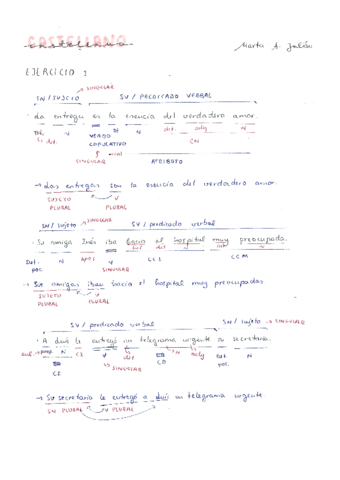 CASTELLANO
Castellano Marta A. Julián
EJERCICIO 1
SINGULAR
SN / SUJETO SV / PREDICADO VERBAL
· La entrega es la esencia del verdadero amor.
Det. N VERBO N det. adj N
COPULATIVO CN
SINGULAR ATRIBUTO
→ Las entregas son la esencia del verdadero amor.
SUJETO V
PLURAL PLURAL
SN / sujeto → SINGULAR SV / predicado verbal
· Su amiga Inés iba hacia el hospital muy preocupada.
Det. N Apos V
pos. SINGULAR CCL CCM
→ Sus amigas iban hacia el hospital muy preocupadas
SUJETO V
PLURAL PLURAL
SV / predicado verbal SN / sujeto → SINGULAR
· A Luis le entregó un telegrama urgente su secretaria.
N CI V det N adj Det. N
CD pos.
CI → SINGULAR
→ Su secretaria le entregó a Luis un telegrama urgente.
SN PLURAL SV PLURAL